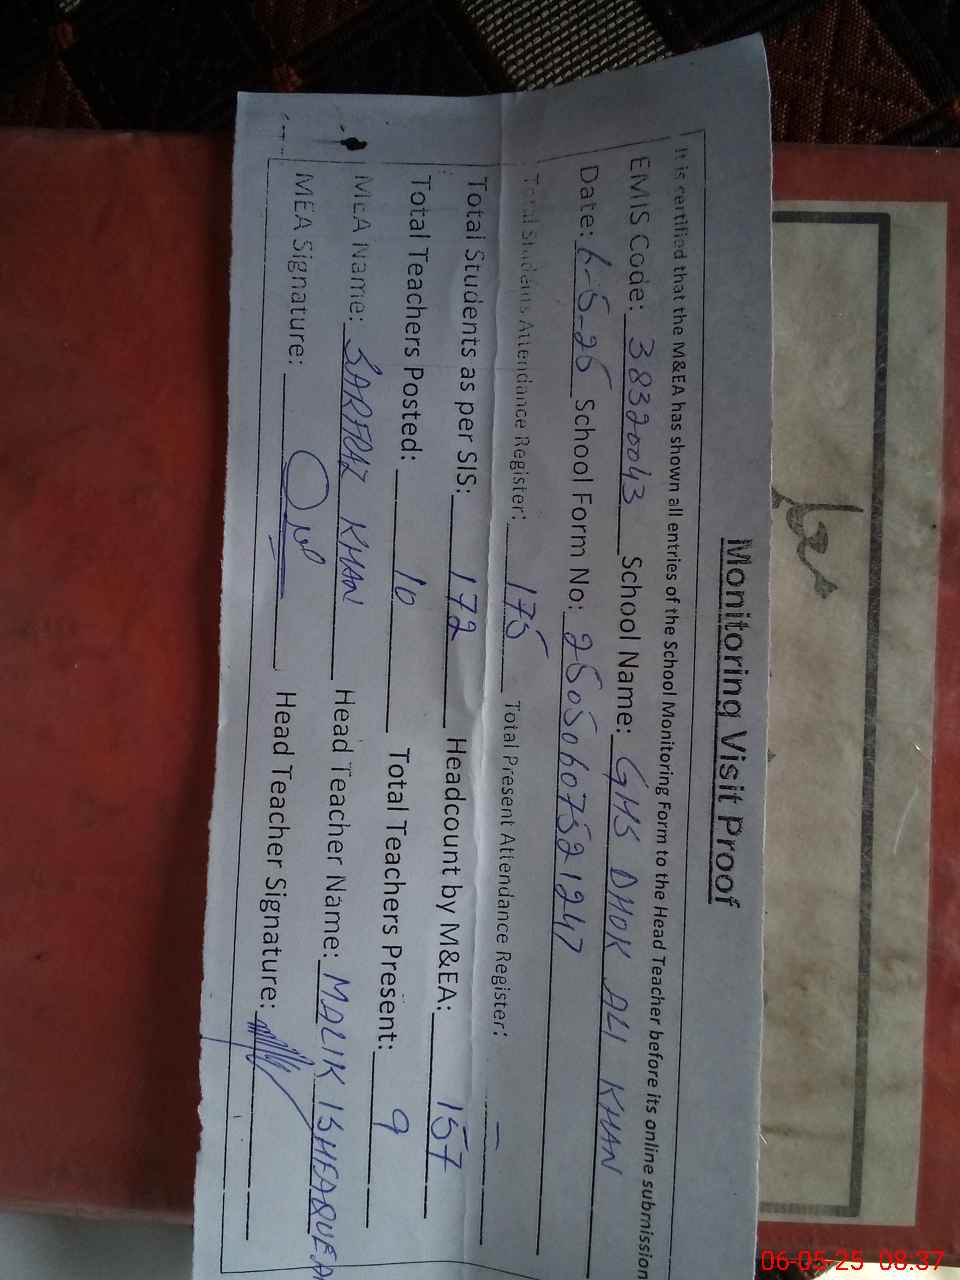 Monitoring Visit Proof
It is certified that the M&EA has shown all entries of the School Monitoring Form to the Head Teacher before its online submission
EMIS Code: 38320043 School Name: GMS DHOK ALI KHAN
Date: 6-5-25 School Form No: 25050607521247
Total Students Attendance Register: 175 Total Present Attendance Register: —
Total Students as per SIS: 172 Headcount by M&EA: 157
Total Teachers Posted: 10 Total Teachers Present: 9
MEA Name: SARFRAZ KHAN Head Teacher Name: MALIK
MEA Signature: Head Teacher Signature:
06-05-25 08:37